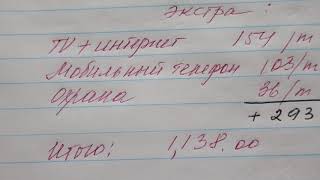 экстра :
TV + интернет 154 /m
Мобильный телефон 103/m
Охрана 36/m
+ 293
Итого: 1,138.00